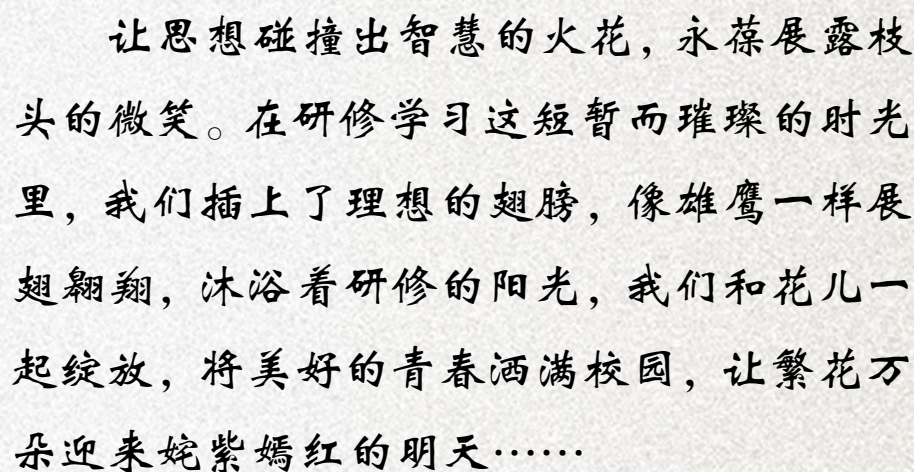 让思想碰撞出智慧的火花，永葆展露枝
头的微笑。在研修学习这短暂而璀璨的时光
里，我们插上了理想的翅膀，像雄鹰一样展
翅翱翔，沐浴着研修的阳光，我们和花儿一
起绽放，将美好的青春洒满校园，让繁花万
朵迎来姹紫嫣红的明天……